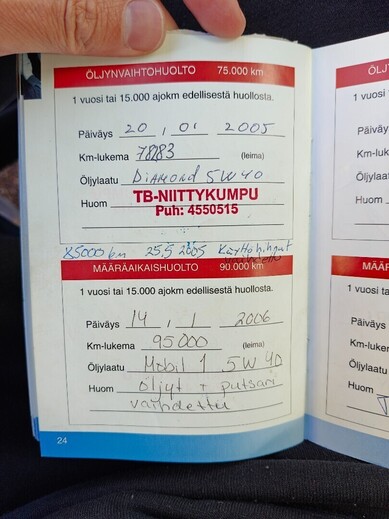 ÖLJYNVAIHTOHUOLTO 75.000 km
1 vuosi tai 15.000 ajokm edellisestä huollosta.
Päiväys 20 , 01 2005
Km-lukema 78283 (leima)
Öljylaatu DIAMOND 5W40
Huom TB-NIITTYKUMPU
Puh: 4550515
85000 km 25.5 2005
MÄÄRÄAIKAISHUOLTO 90.000 km
1 vuosi tai 15.000 ajokm edellisestä huollosta.
Päiväys 14 , 1 2006
Km-lukema 95000 (leima)
Öljylaatu Mobil 1 5W40
Huom öljyt + putsari
vaihdettu
24
ÖLJ
1 vuosi tai
Päiväys
Km-lukem
Öljylaat
Huom
MÄÄR
1 vuosi ta
Päiväys
Km-luke
Öljylaa
Huom